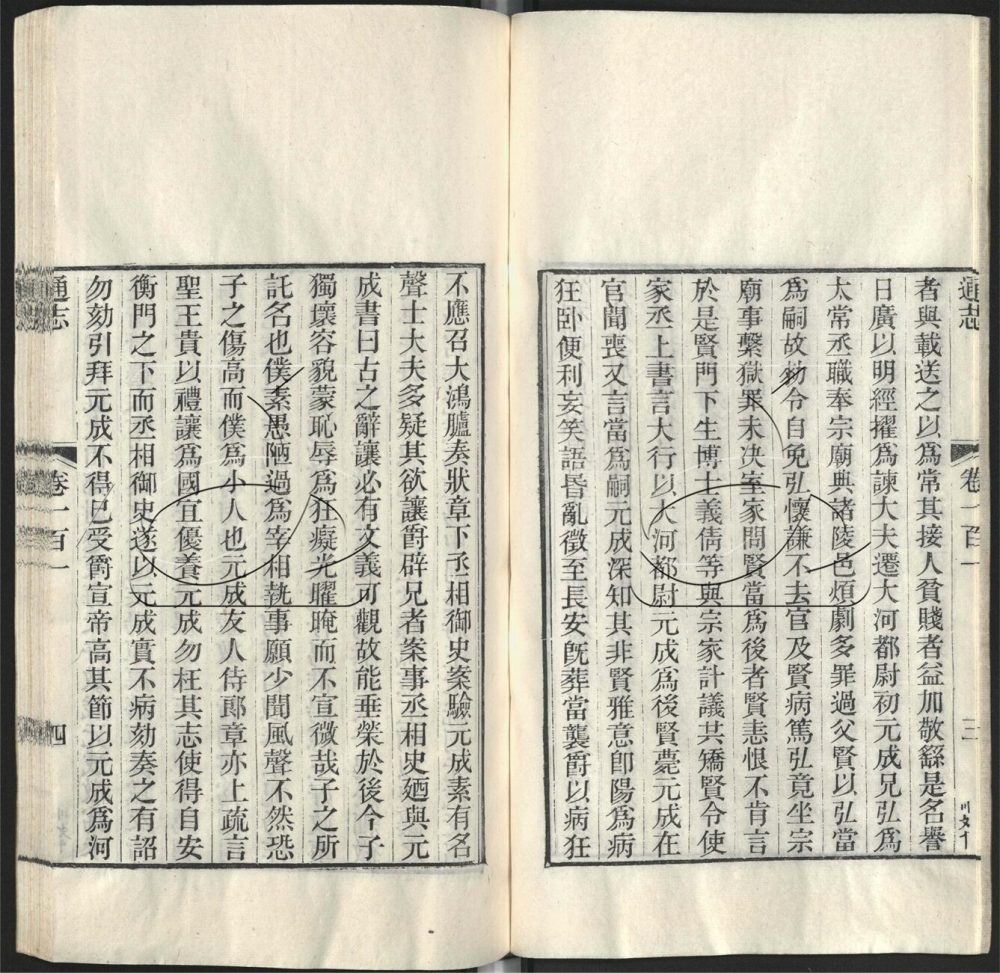 通志
卷一百一
三
者與載送之以爲常其接人貧賤者益加敬繇是名譽
日廣以明經擢爲諫大夫遷大河都尉初元成兄弘爲
太常丞職奉宗廟典諸陵邑煩劇多罪過父賢以弘當
爲嗣故勑令自免弘懷謙不去官及賢病篤弘竟坐宗
廟事繫獄罪未決室家問賢當爲後者賢恚恨不肯言
於是賢門下生博士義倩等與宗家計議共矯賢令使
家丞上書言大行以大河都尉元成爲後賢薨元成在
官聞喪又言當爲嗣元成深知其非賢雅意卽陽爲病
狂卧便利妄笑語昏亂徵至長安旣葬當襲爵以病狂
不應召大鴻臚奏狀章下丞相御史案驗元成素有名
聲士大夫多疑其欲讓爵辟兄者案事丞相史廼與元
成書曰古之辭讓必有文義可觀故能垂榮於後今子
獨壞容貌蒙恥辱爲狂癡光曜晻而不宣微哉子之所
託名也僕素愚陋過爲宰相執事願少聞風聲不然恐
子之傷高而僕爲小人也元成友人侍郎章亦上疏言
聖王貴以禮讓爲國宜優養元成勿枉其志使得自安
衡門之下而丞相御史遂以元成實不病劾奏之有詔
勿劾引拜元成不得已受爵宣帝高其節以元成爲河
通志
卷一百一
四